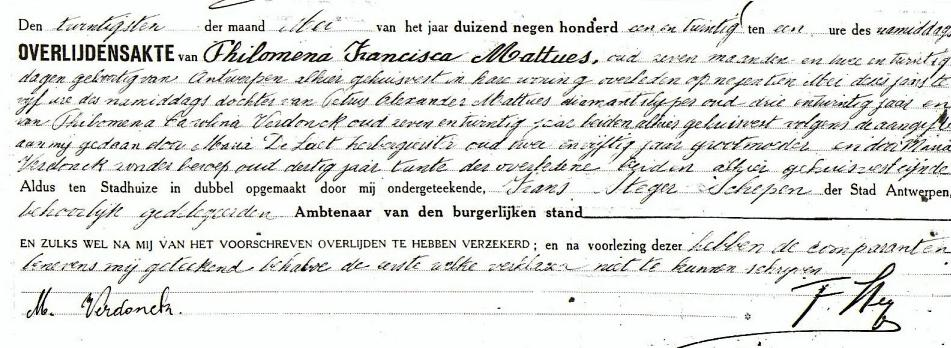 Den twintigsten der maand Mei van het jaar duizend negen honderd een en twintig ten een ure des namiddags
OVERLIJDENSAKTE van Philomena Francisca Mattues, oud zeven maanden en twee en twintig
dagen geboortig van Antwerpen alhier gehuisvest in hare woning overleden op negentien Mei dezes jaars te
vijf ure des namiddags dochter van Petrus Alexander Mattues diamantslyper oud drie en twintig jaar en
van Philomena Carolina Verdonck oud zeven en twintig jaar beiden alhier gehuisvest volgens de aangifte
aan mij gedaan door Maria De Laet herbergierster oud twee en vijftig jaar grootmoeder en door Maria
Verdonck zonder beroep oud dertig jaar tante der overledene beiden alhier gehuisvest zijnde
Aldus ten Stadhuize in dubbel opgemaakt door mij ondergeteekende, Frans Steger Schepen der Stad Antwerpen,
behoorlijk gedelegeerden Ambtenaar van den burgerlijken stand
EN ZULKS WEL NA MIJ VAN HET VOORSCHREVEN OVERLIJDEN TE HEBBEN VERZEKERD ; en na voorlezing dezer hebben de comparanten
benevens mij geteekend behalve de eerste welke verklaart niet te kunnen schrijven
M. Verdonck. F. Steg